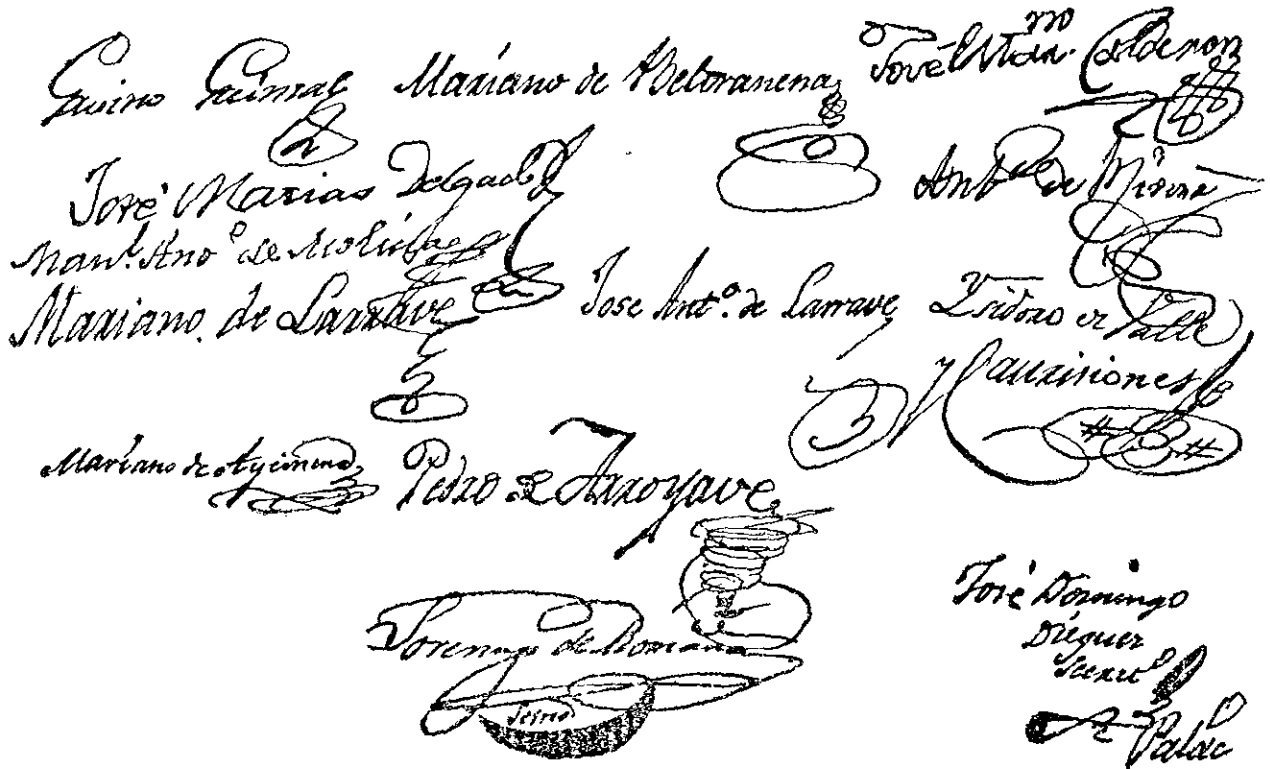 Gavino Gainza Mariano de Beltranena José Mar.no Calderon
José Matias Delgado Ant.o de Rivera
Man.l Ano de Molina
Mariano de Larrave José Ant.o de Larrave Ysidoro de Valle
y Castriciones
Mariano de Aycinena Pedro de Arroyave
Lorenzo de Romaña
José Domingo
Dieguez
Secret.o
Palac